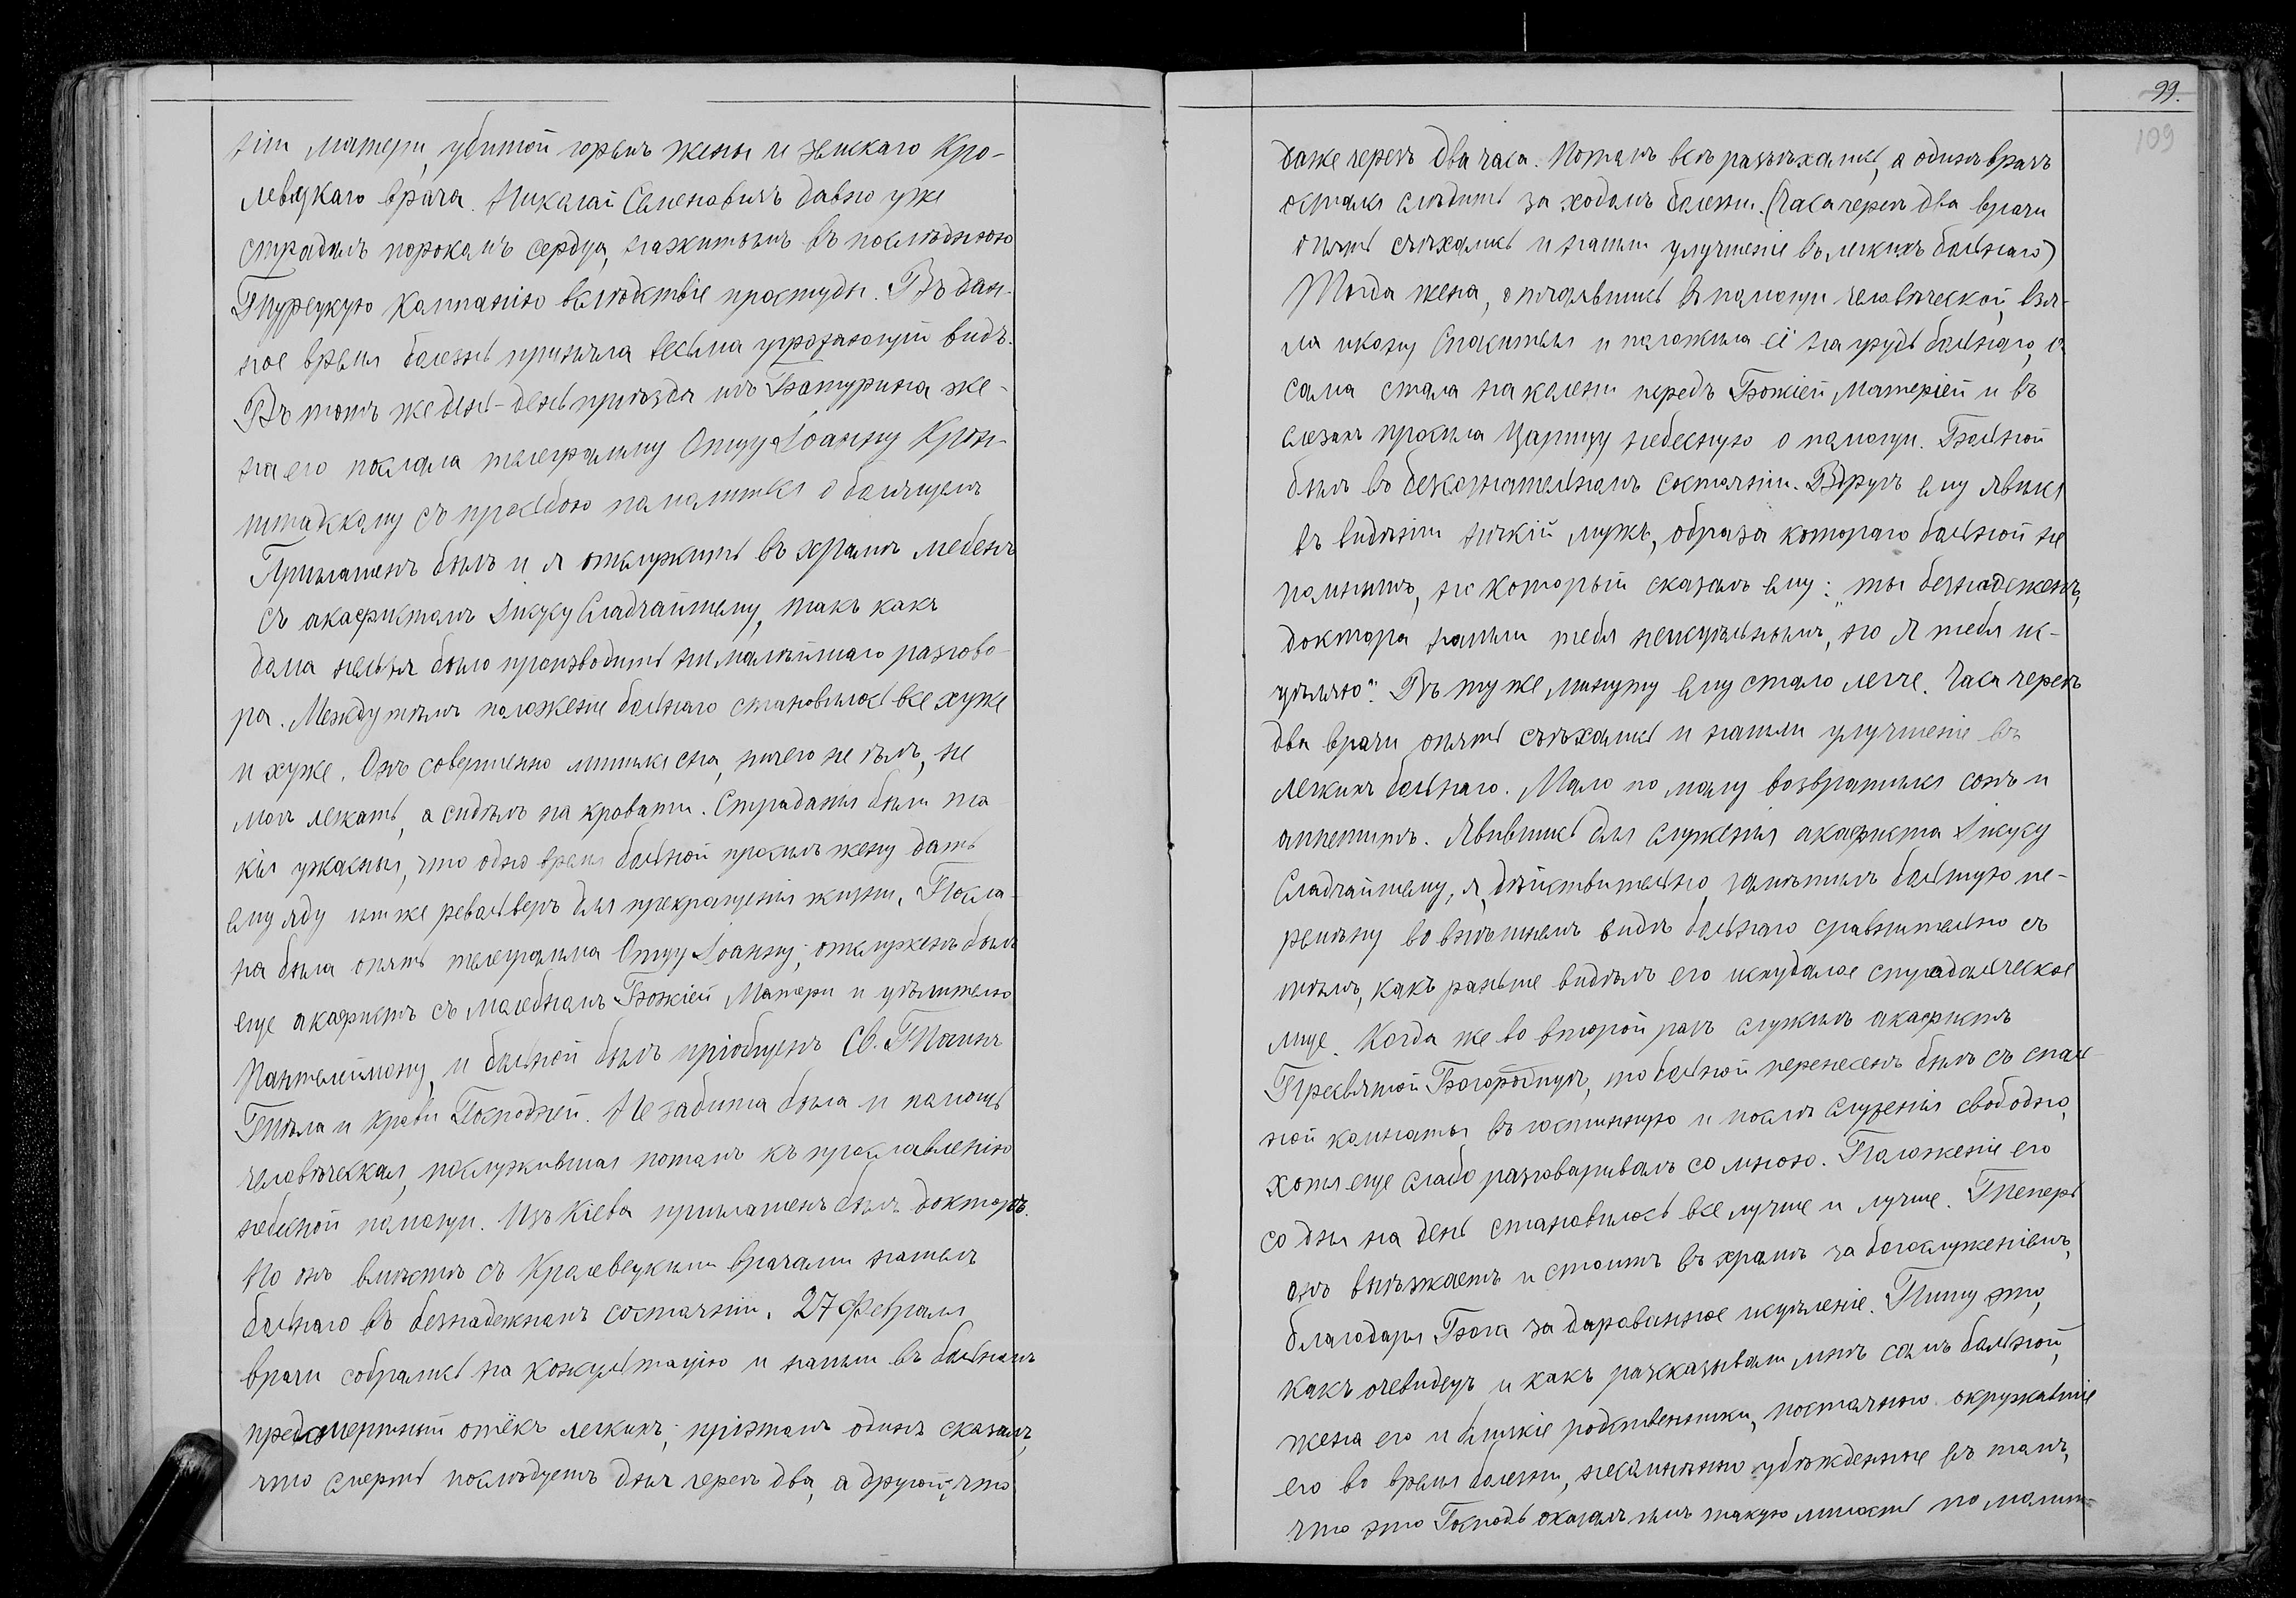 ніи матери, убитой горемъ жены и земскаго Кро-
левецкаго врача. Николай Семеновичъ давно уже
страдалъ порокомъ сердца, нажитымъ въ послѣднюю
Турецкую Кампанію вслѣдствіе простуды. Въ дан-
ное время болезнь приняла весьма угрожающій видъ.
Въ тотъ же день-день пріѣзда изъ Батурина же-
на его послала телеграмму Отцу Іоанну Крон-
штадскому съ просьбою помолиться о болящемъ
Приглашенъ былъ и я отслужить въ храмѣ мебенъ
съ акафистомъ Іисусу Сладчайшему, такъ какъ
дома нельзя было производить ни малѣйшаго разгово-
ра. Между тѣмъ положеніе больнаго становилось все хуже
и хуже. Онъ совершенно лишился сна, ничего не ѣлъ, не
могъ лежать, а сидѣлъ на кровати. Страданія были та-
кія ужасныя, что одно время больной просилъ жену дать
ему яду или же револьверъ для прекращенія жизни. Посла-
на была опять телеграмма Отцу Іоанну; отслуженъ былъ
еще акафистъ съ молебномъ Божіей Матери и цѣлителю
Пантелеймону, и больной былъ пріобщенъ Св. Тайнъ
Тѣла и Крови Господней. Не забыта была и помощь
человѣческая, послужившая потомъ къ прославленію
небесной помощи. Изъ Кіева приглашенъ былъ докторъ.
Но онъ вмѣстѣ съ Кролевецкими врачами нашелъ
больнаго въ безнадежномъ состояніи. 27 Февраля
врачи собрались на консультацію и нашли въ больномъ
предсмертный отёкъ легкихъ; при этомъ одинъ сказалъ,
что смерть послѣдуетъ дня черезъ два, а другой, что
99.
109
даже черезъ два часа. Потомъ всѣ разъѣхались, а одинъ врачъ
остался слѣдить за ходомъ болезни. (Часа черезъ два врачи
опять съѣхались и нашли улучшеніе въ легкихъ больнаго)
Тогда жена, отчаявшись въ помощи человѣческой, взя-
ла икону Спасителя и положила её на грудь больнаго, а
сама стала на колени передъ Божіей Матерію и въ
слезахъ просила Царицу небесную о помощи. Больной
былъ въ безсознательномъ состояніи. Вдругъ ему явился
въ видѣніи нѣкій мужъ, образа котораго больной не
помнитъ, но который сказалъ ему: „ты безнадеженъ,
доктора нашли тебя неисцѣльнымъ, но Я тебя ис-
цѣляю“. Въ ту же минуту ему стало легче. Часа черезъ
два врачи опять съѣхались и нашли улучшеніе въ
легкихъ больнаго. Мало по малу возвратился сонъ и
аппетитъ. Явившись для служенія акафиста Іисусу
Сладчайшему, я, дѣйствительно, замѣтилъ большую пе-
ремѣну во внѣшнемъ видѣ больнаго сравнительно съ
тѣмъ, какъ раньше видѣлъ его исхудалое страдальческое
лице. Когда же во второй разъ служилъ акафистъ
Пресвятой Богородицѣ, то больной перенесенъ былъ съ спаль-
ной комнаты въ гостинную и послѣ служенія свободно,
хотя еще слабо разговаривалъ со мною. Положеніе его
со дня на день становилось все лучше и лучше. Теперь
онъ выѣзжаетъ и стоитъ въ храмѣ за богослуженіемъ,
благодаря Бога за дарованное исцѣленіе. Пишу это,
какъ очевидецъ и какъ разсказывали мнѣ самъ больной,
жена его и близкіе родственники, постоянно окружавшіе
его во время болезни, несомнѣнно убѣжденные въ томъ,
что это Господь оказалъ имъ такую милость по молит-